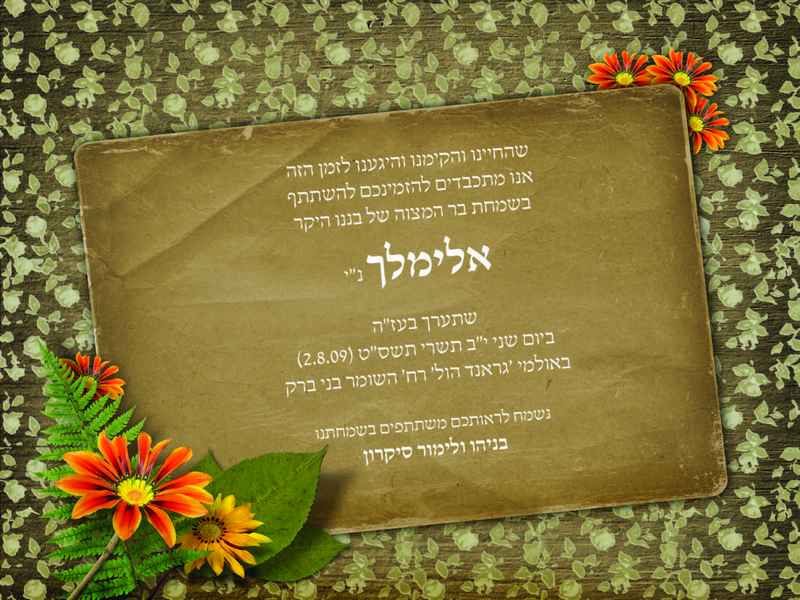 שהחיינו והקימנו והיגענו לזמן הזה
אנו מתכבדים להזמינכם להשתתף
בשמחת בר המצוה של בננו היקר
אלימלך נ"י
שתערך בעז"ה
ביום שני י"ב תשרי תשס"ט (2.8.09)
באולמי 'גראנד הול' רח' השומר בני ברק
נשמח לראותכם משתתפים בשמחתנו
בניהו ולימור סיקרון